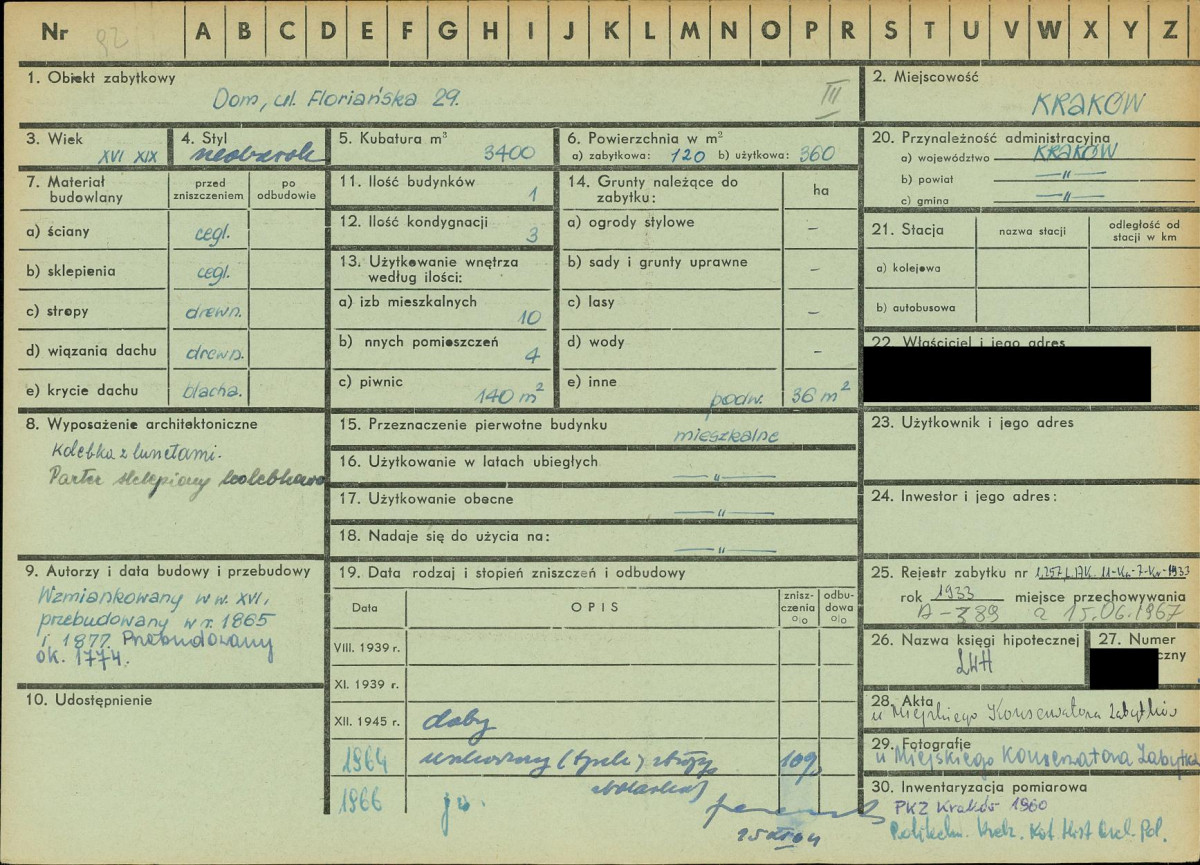 Nr 92 A B C D E F G H I J K L M N O P R S T U V W X Y Z
1. Obiekt zabytkowy
Dom, ul. Floriańska 29.
III
2. Miejscowość
KRAKÓW
3. Wiek
XVI XIX
4. Styl
neobarok
5. Kubatura m³
3400
6. Powierzchnia w m²
a) zabytkowa: 120 b) użytkowa: 360
20. Przynależność administracyjna
a) województwo KRAKÓW
b) powiat —"—
c) gmina —"—
7. Materiał budowlany
przed zniszczeniem
po odbudowie
a) ściany cegl.
b) sklepienia cegl.
c) stropy drewn.
d) wiązania dachu drewn.
e) krycie dachu blacha.
11. Ilość budynków
1
12. Ilość kondygnacji
3
13. Użytkowanie wnętrza
według ilości:
a) izb mieszkalnych
10
b) nnych pomieszczeń
4
c) piwnic
140 m²
14. Grunty należące do
zabytku:
ha
a) ogrody stylowe –
b) sady i grunty uprawne –
c) lasy –
d) wody -
e) inne
podw. 36 m²
21. Stacja
nazwa stacji
odległość od
stacji w km
a) kolejowa
b) autobusowa
22. Właściciel i jego adres
8. Wyposażenie architektoniczne
Kolebka z lunetami.
Parter sklepiony kolebkowo
15. Przeznaczenie pierwotne budynku
mieszkalne
16. Użytkowanie w latach ubiegłych
—"—
17. Użytkowanie obecne
—"—
18. Nadaje się do użycia na:
—"—
23. Użytkownik i jego adres
24. Inwestor i jego adres:
9. Autorzy i data budowy i przebudowy
Wzmiankowany w w. XVI,
przebudowany w r. 1865
i 1877. Przebudowany
ok. 1774.
10. Udostępnienie
19. Data rodzaj i stopień zniszczeń i odbudowy
Data
OPIS
znisz-
czenia
%
odbu-
dowa
%
VIII. 1939 r.
XI. 1939 r.
XII. 1945 r. dobry
1964 uszkodzony (tynki)
10%
1966
25. Rejestr zabytku nr
rok 1933 miejsce przechowywania
A-389 z 15.06.1967
26. Nazwa księgi hipotecznej
LWH
27. Numer
czny
28. Akta
u Miejskiego Konserwatora Zabytków
29. Fotografie
u Miejskiego Konserwatora Zabytków
30. Inwentaryzacja pomiarowa
PKZ Kraków 1960
Politechn. Krak. Kat. Hist. Arch. Pol.